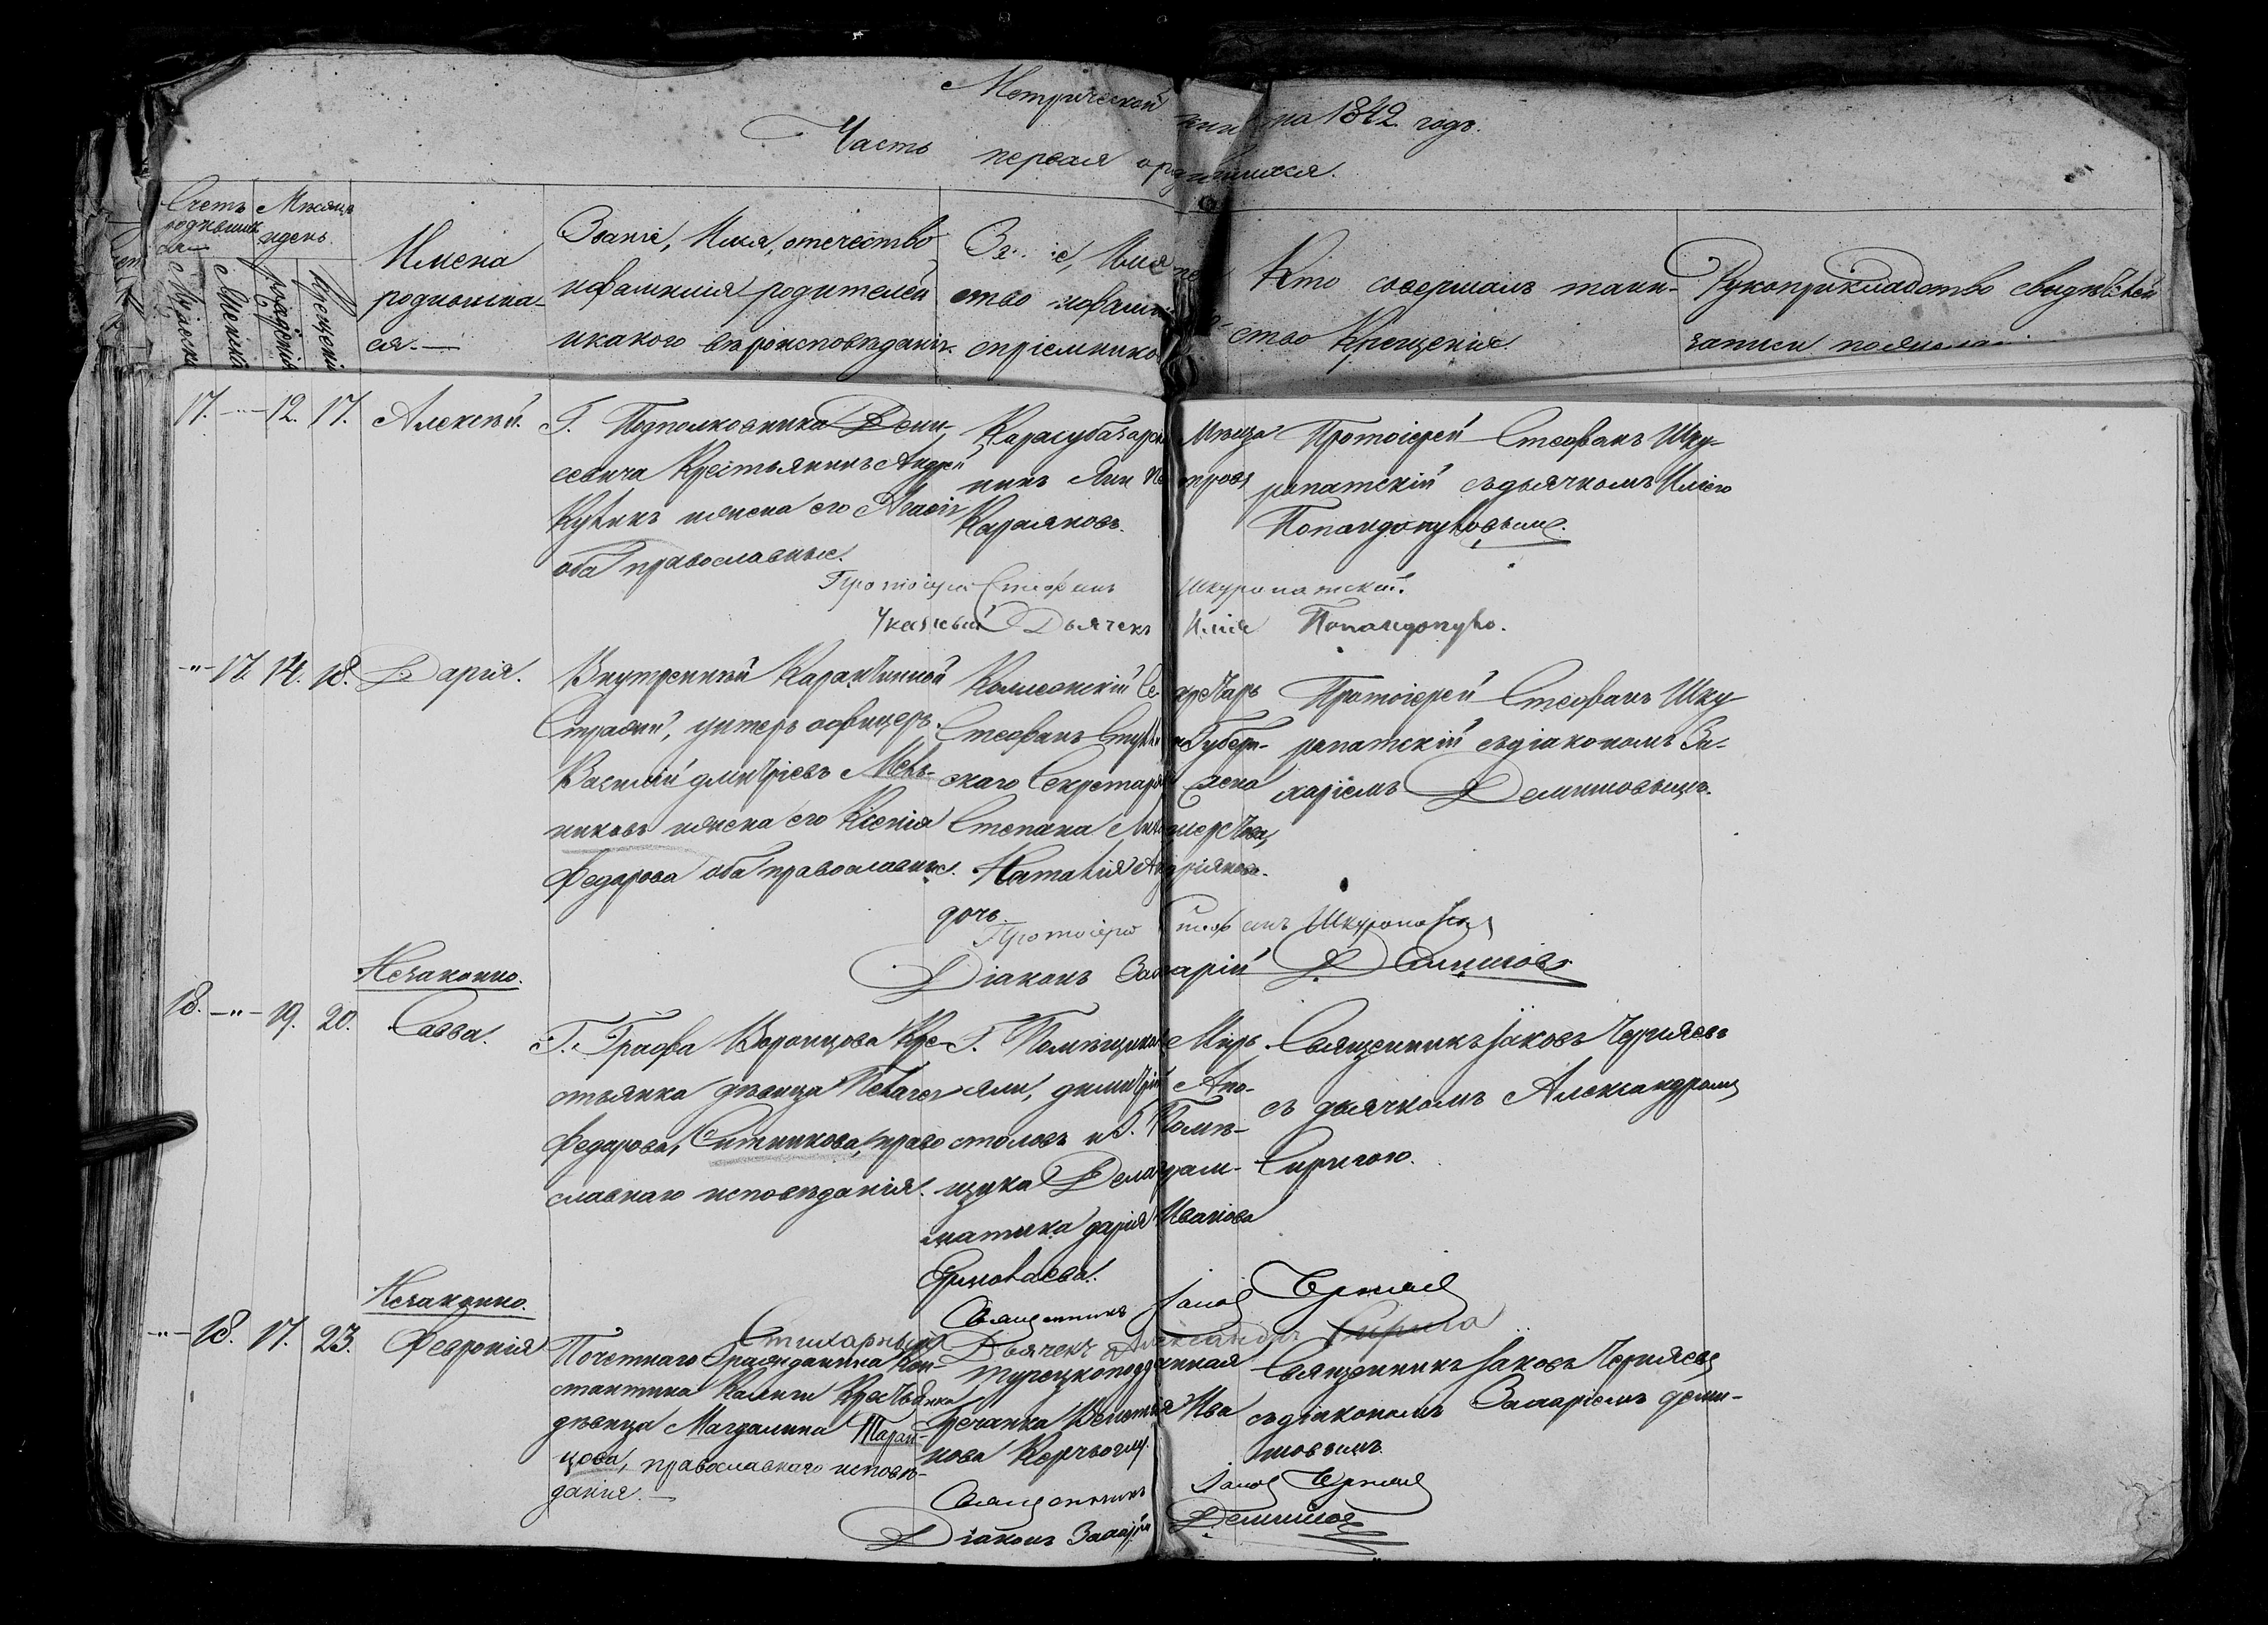 Метрической книги на 1842 годъ.
Часть первая о родившихся.
Счетъ родившихся
Мужеска
Женска
Мѣсяцъ и день
Рожденія
Крещенія
Имена
родивших-
ся.—
Званіе, Имя, отечество
и фамилія родителей
и какого вѣроисповѣданія.
Званіе, Имя, отече-
ство и фамилія
воспріемниковъ
Кто совершалъ таин-
ство Крещенія.
Рукоприкладство свидѣтелей
записи по желанію
17. — 12. 17. Алексѣй.
Г. Подполковника Дени-
севича Крестьянинъ Андрей
и жена его
оба православные.
Карасубазарскій Мѣща-
нинъ Петровъ
Протоіерей Стефанъ Шку-
ропатскій съ дьячкомъ Иліею
Попандопуловымъ.
Протоіерей Стефанъ Шкуропатскій.
Указный Дьячекъ Илія Попандопуло.
-"- 17. 14. 18. Дарія.
Внутренней Карантинной
Стражи, унтеръ офицеръ
Василій Дмитріевъ Мель-
никовъ и жена его Ксенія
Федорова оба православные.
Коллежскій Секретарь
Стефанъ и Губерн-
скаго Секретаря
Степана
Наталія
дочь.
Протоіерей Стефанъ Шку
ропатскій съ діакономъ За-
харіемъ Демишовымъ.
Протоіерей Стефанъ Шкуропатскій
Діаконъ Захарій Демишовъ
Незаконно.
18. -"- 19. 20. Савва.
Г. Графа Воронцова Кре-
стьянка дѣвица Пелагея
Федорова, Ситникова, право
славнаго исповѣданія.
Г. Помѣщика Мир-
яли, Димитрій Апо-
столовъ и Г. Помѣ-
щика Делаграм-
матика Дарія Иванова
Ермолаева.
Священникъ Іаковъ Черняевъ
съ дьячкомъ Александромъ
Сиригою.
Священникъ Іаковъ Черняевъ
Стихарный Дьячекъ Александръ Сирига
Незаконно.
-"- 18. 17. 23. Февронія
Почетнаго Гражданина Кон-
стантина Крестьянка
дѣвица Магдалина Таран-
цова, православнаго исповѣ-
данія.—
Турецкоподданная
Гречанка Ива
нова
Священникъ Іаковъ Черняевъ
съ діакономъ Захаріемъ Деми-
шовымъ.
Священникъ Іаковъ Черняевъ
Діаконъ Захарій Демишовъ